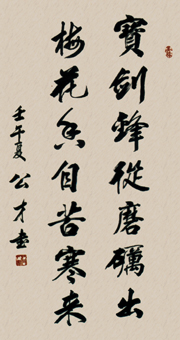 寶劍鋒從磨礪出
梅花香自苦寒来
壬午夏 公才書